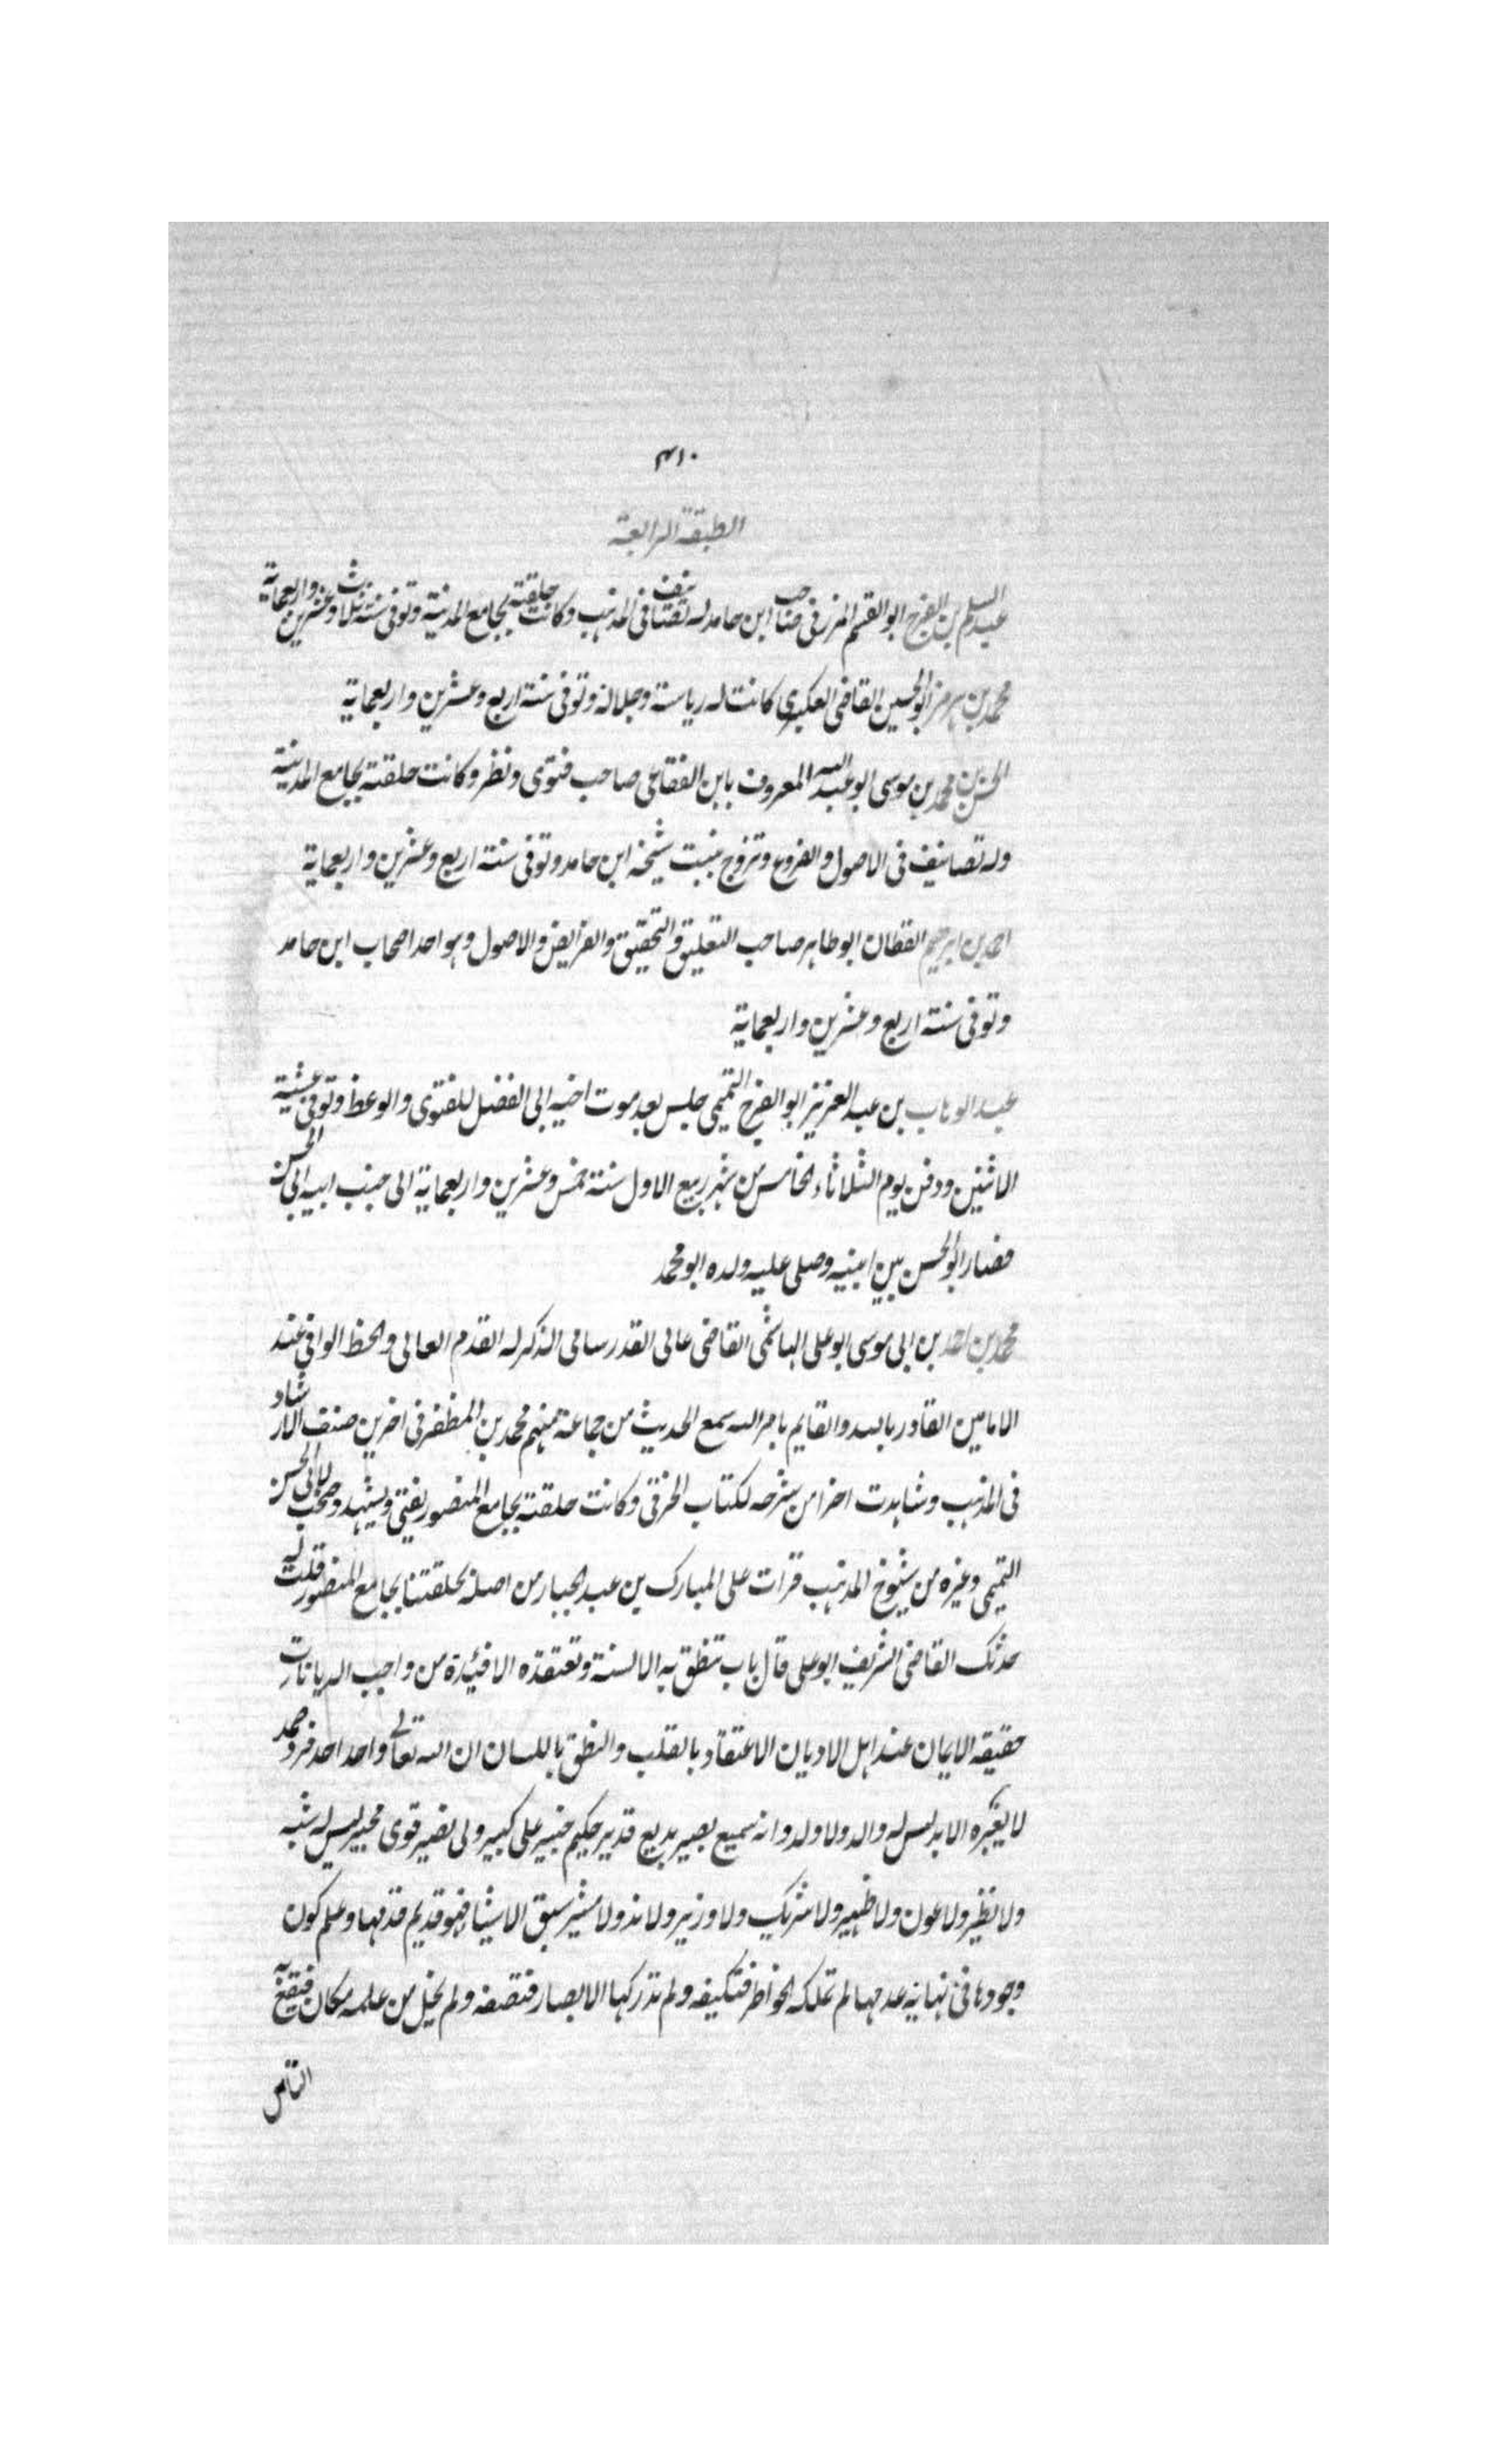 ٣١٠
الطبقة الرابعة
عبد السلم بن الفرج ابو القسم المزرفى صاحب ابن حامد له تصانيف فى المذهب وكانت حلقته بجامع المدينة وتوفى سنة ثلاث وعشرين واربعماية
محمد بن هرمز ابو الحسين القاضى العكبرى كانت له رياسة وجلالة وتوفى سنة اربع وعشرين واربعماية
الحسن بن محمد بن موسى ابو عبد الله المعروف بابن الفقاعى صاحب فتوى ونظر وكانت حلقته بجامع المدينة
وله تصانيف فى الاصول والفروع وتزوج ببنت شيخه ابن حامد وتوفى سنة اربع وعشرين واربعماية
احمد بن ابرهيم القطان ابو طاهر صاحب التعليق والتحقيق والفرايض والاصول وهو احد اصحاب ابن حامد
وتوفى سنة اربع وعشرين واربعماية
عبد الوهاب بن عبد العزيز ابو الفرج التميمى جلس بعد موت اخيه ابى الفضل للفتوى والوعظ وتوفى عشية
الاثنين ودفن يوم الثلاثاء الخامس من شهر ربيع الاول سنة خمس وعشرين واربعماية الى جنب ابيه ابى الحسن
فصار ابو الحسن بين ابنيه وصلى عليه ولده ابو محمد
محمد بن احمد بن ابى موسى ابو على الهاشمى القاضى عالى القدر سامى الذكر له القدم العالى والحظ الوافى عند
الامامين القادر بالله والقايم بامر الله سمع الحديث من جماعة منهم محمد بن المظفر فى اخرين صنف الارشاد
فى المذهب وشاهدت اجزا من شرحه لكتاب الخرقى وكانت حلقته بجامع المنصور يفتى ويشهد وصحب لابى الحسن
التميمى وغيره من شيوخ المذهب قرات على المبارك بن عبد الجبار من اصله بحلقتنا بجامع المنصور قلت له
حدثك القاضى الشريف ابو على قال باب تنطق به الالسنة وتعتقده الافئدة من واجب الديانات
حقيقة الايمان عند اهل الاديان الاعتقاد بالقلب والنطق باللسان ان الله تعالى واحد احد فرد صمد
لا يغيره الابد ليس له والد ولا ولد وانه سميع بصير بديع قدير حكيم خبير على كبير ولى نصير قوى مجير ليس له شبه
ولا نظير ولا عون ولا ظهير ولا شريك ولا وزير ولا ند ولا مشير سبق الاشياء فهو قديم قدمها وعلم كون
وجودها فى نهاية عدمها لم تملكه الخواطر فتكيفه ولم تدركها الابصار فتصفه ولم يخل من علمه مكان فيقع به
التأين